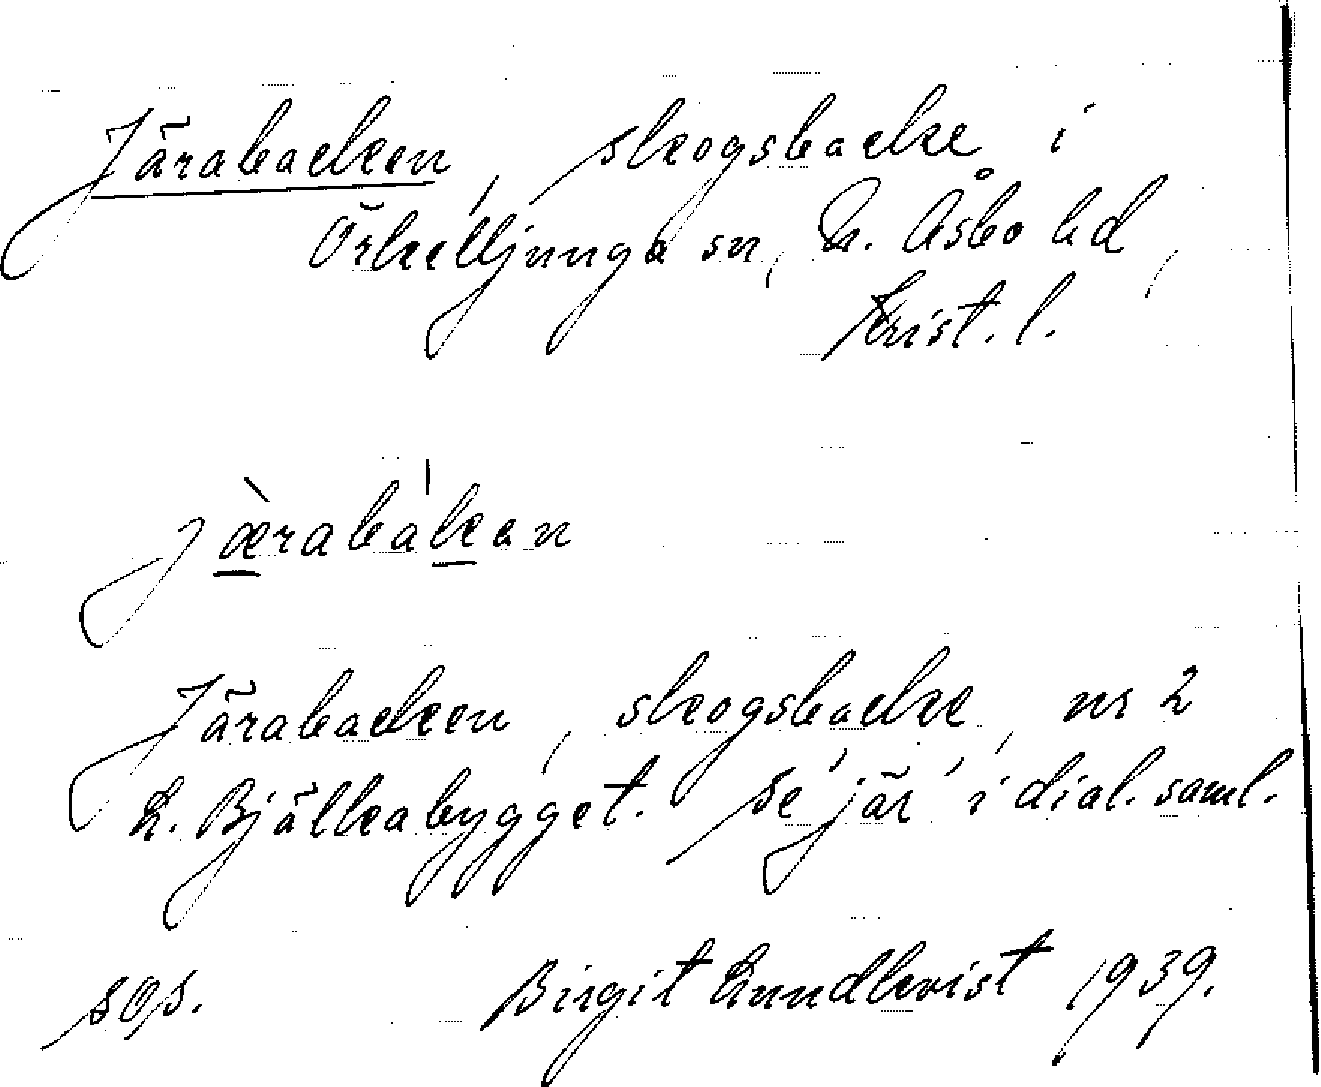 Järabacken, skogsbacke i
Örkelljunga sn, N. Åsbo hd,
Krist. l.
jæ̀rabàkan
Järabacken, skogsbacke, nr 2
L. Bjälkabygget. Se 'jär' i dial. saml.
sgs. Birgit Lundkvist 1939.